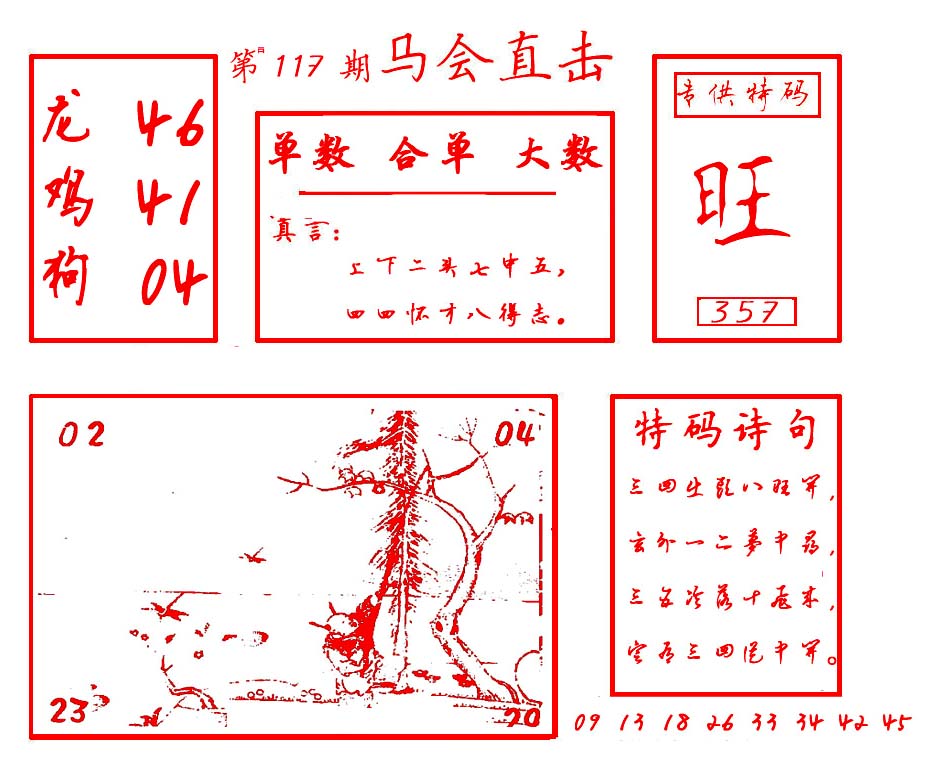 第 117 期 马会直击
龙 46
鸡 41
狗 04
单数 合单 大数
真言：
上下二头七中五，
四四怀才八得志。
专供特码
旺
357
02
04
23
20
特码诗句
三四生乾八旺开，
玄外一二梦中寻，
三五冷落十尾来，
开。
09 13 18 26 33 34 42 45